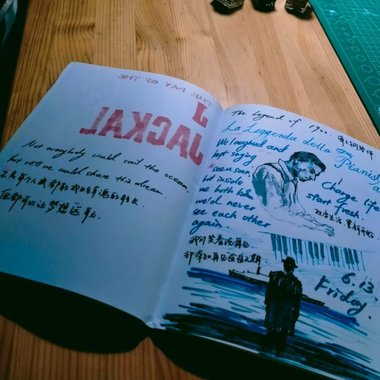 THE DAY OF THE
JACKAL
Not everybody could sail the ocean,
but still we could share this dream.
The Legend of 1900. 海上钢琴师
La Leggenda della Pianista
We laughed and
kept saying
"see u soon,"
but inside
we both knew
we'd never
see each other
again.
我们笑着说再见
却深知再见遥遥无期
change life
&
start fresh.
改变生活 重新开始
6.13.
Friday.